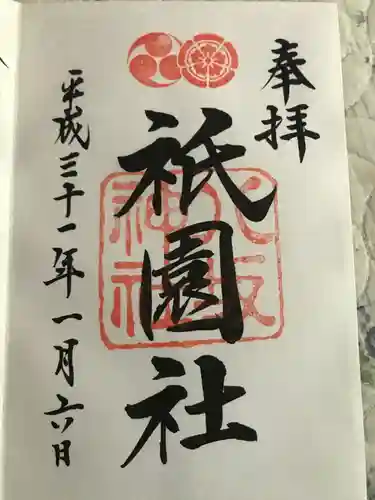 奉拝
八坂神社
祇園社
平成三十一年一月六日